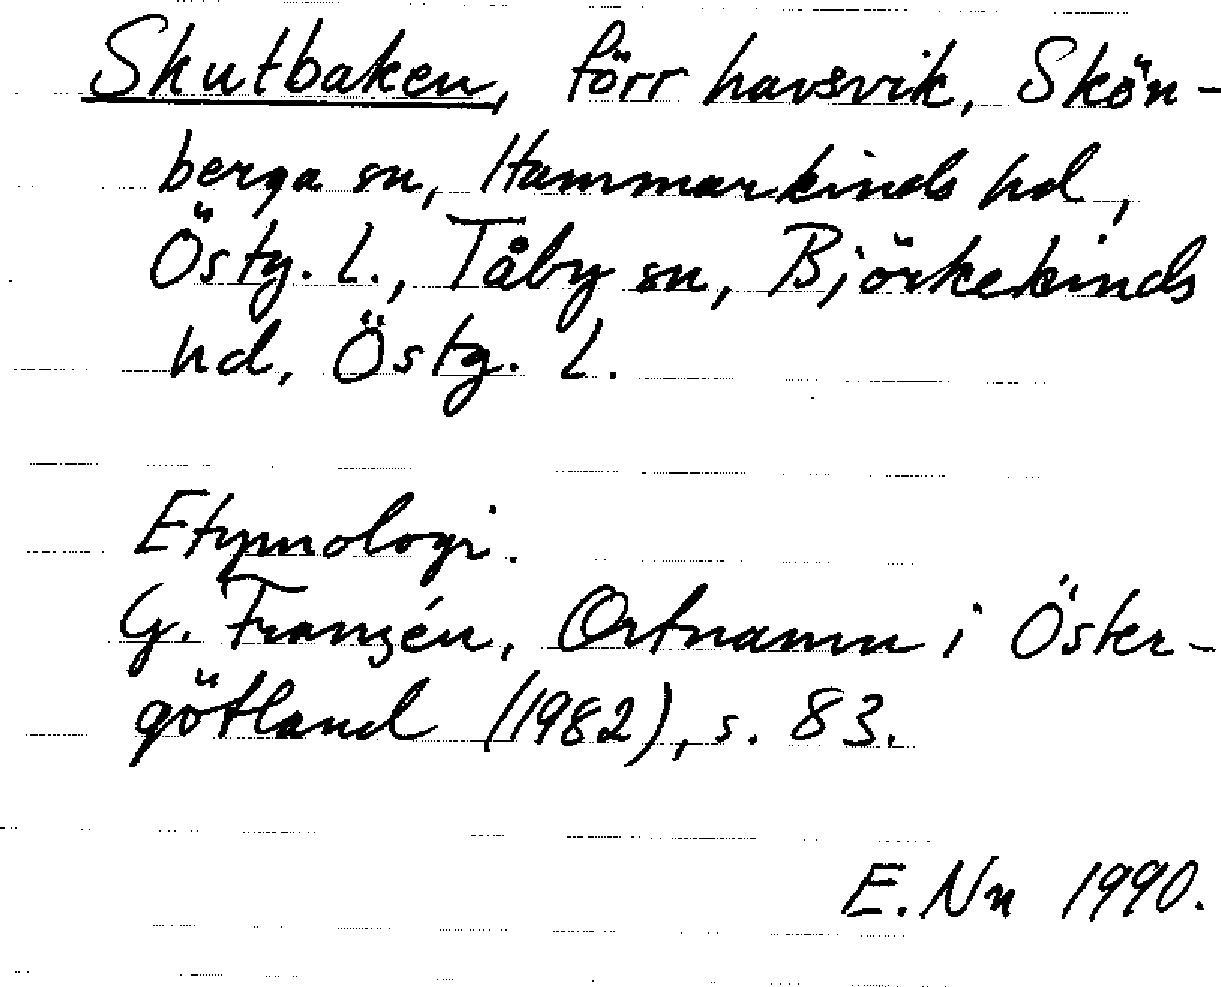 Skutbaken, förr havsvik, Skön-
berga sn, Hammarkinds hd,
Östg. l., Tåby sn, Björkekinds
hd, Östg. l.
Etymologi.
G. Franzén, Ortnamn i Öster-
götland (1982), s. 83.
E. Nn 1990.